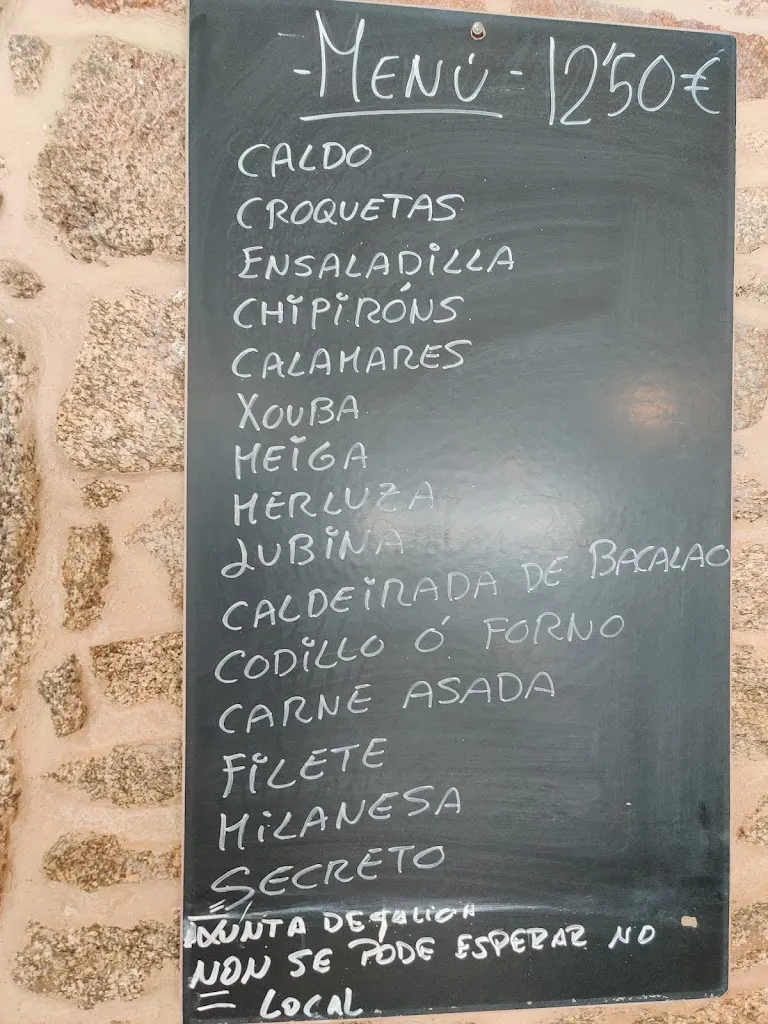 -MENÚ- 12'50€
CALDO
CROQUETAS
ENSALADILLA
CHIPIRÓNS
CALAMARES
XOUBA
MEIGA
MERLUZA
LUBINA
CALDEIRADA DE BACALAO
CODILLO Ó FORNO
CARNE ASADA
FILETE
MILANESA
SECRETO
XUNTA DE GALICIA
NON SE PODE ESPERAR NO
= LOCAL